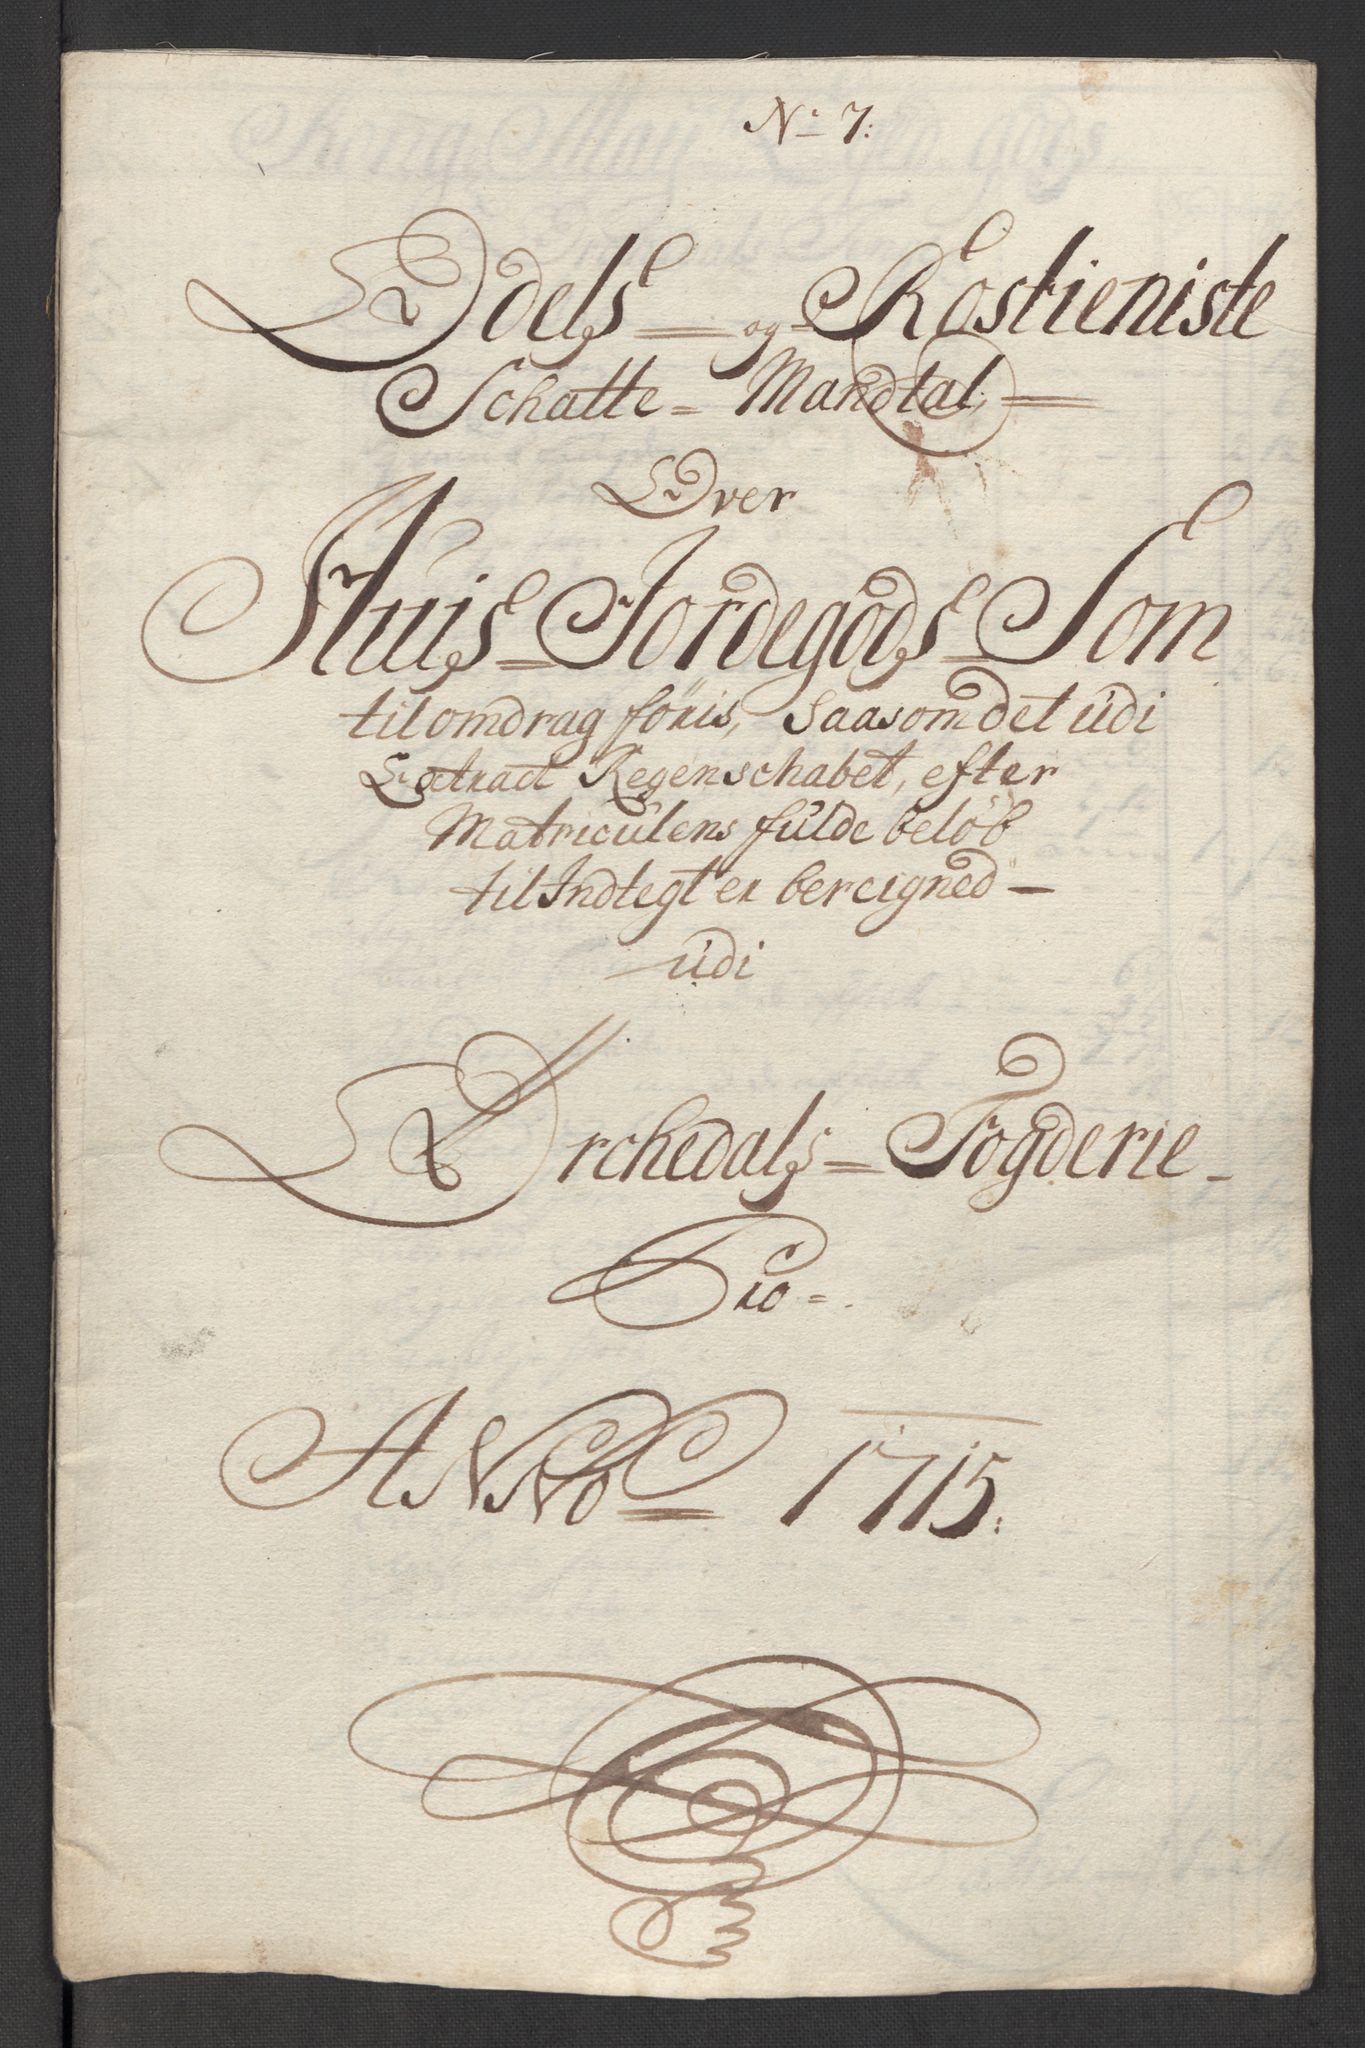 No 7:
Odels og Rostieniste
Schatte Mandtal,
Over
Huis Jordegods Som
til omdrag föris, Saasom det udi
Extract Regenschabet, efter
Matriculens fulde belöb
til Indtegt er bereigned
udi
Orchedals Fogderie
Pro
ANNO 1715.